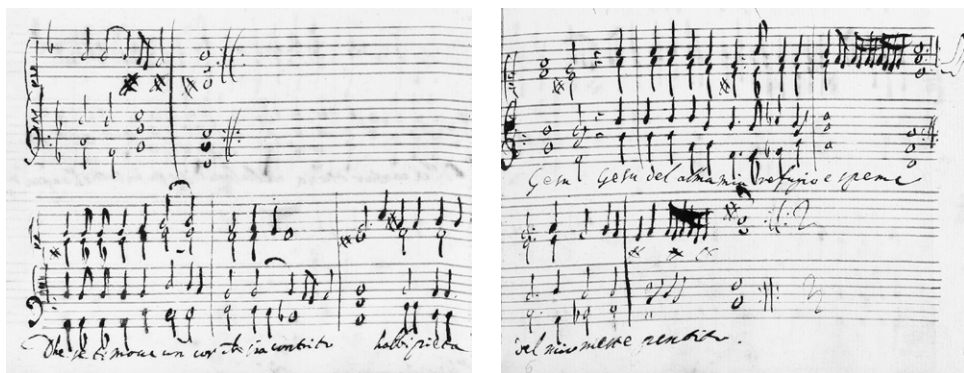 Dhe se ti move un cor che sia contrito habbi pieta
Gesu Gesu del alma mia refugio e speme
del mio mesto pentito.